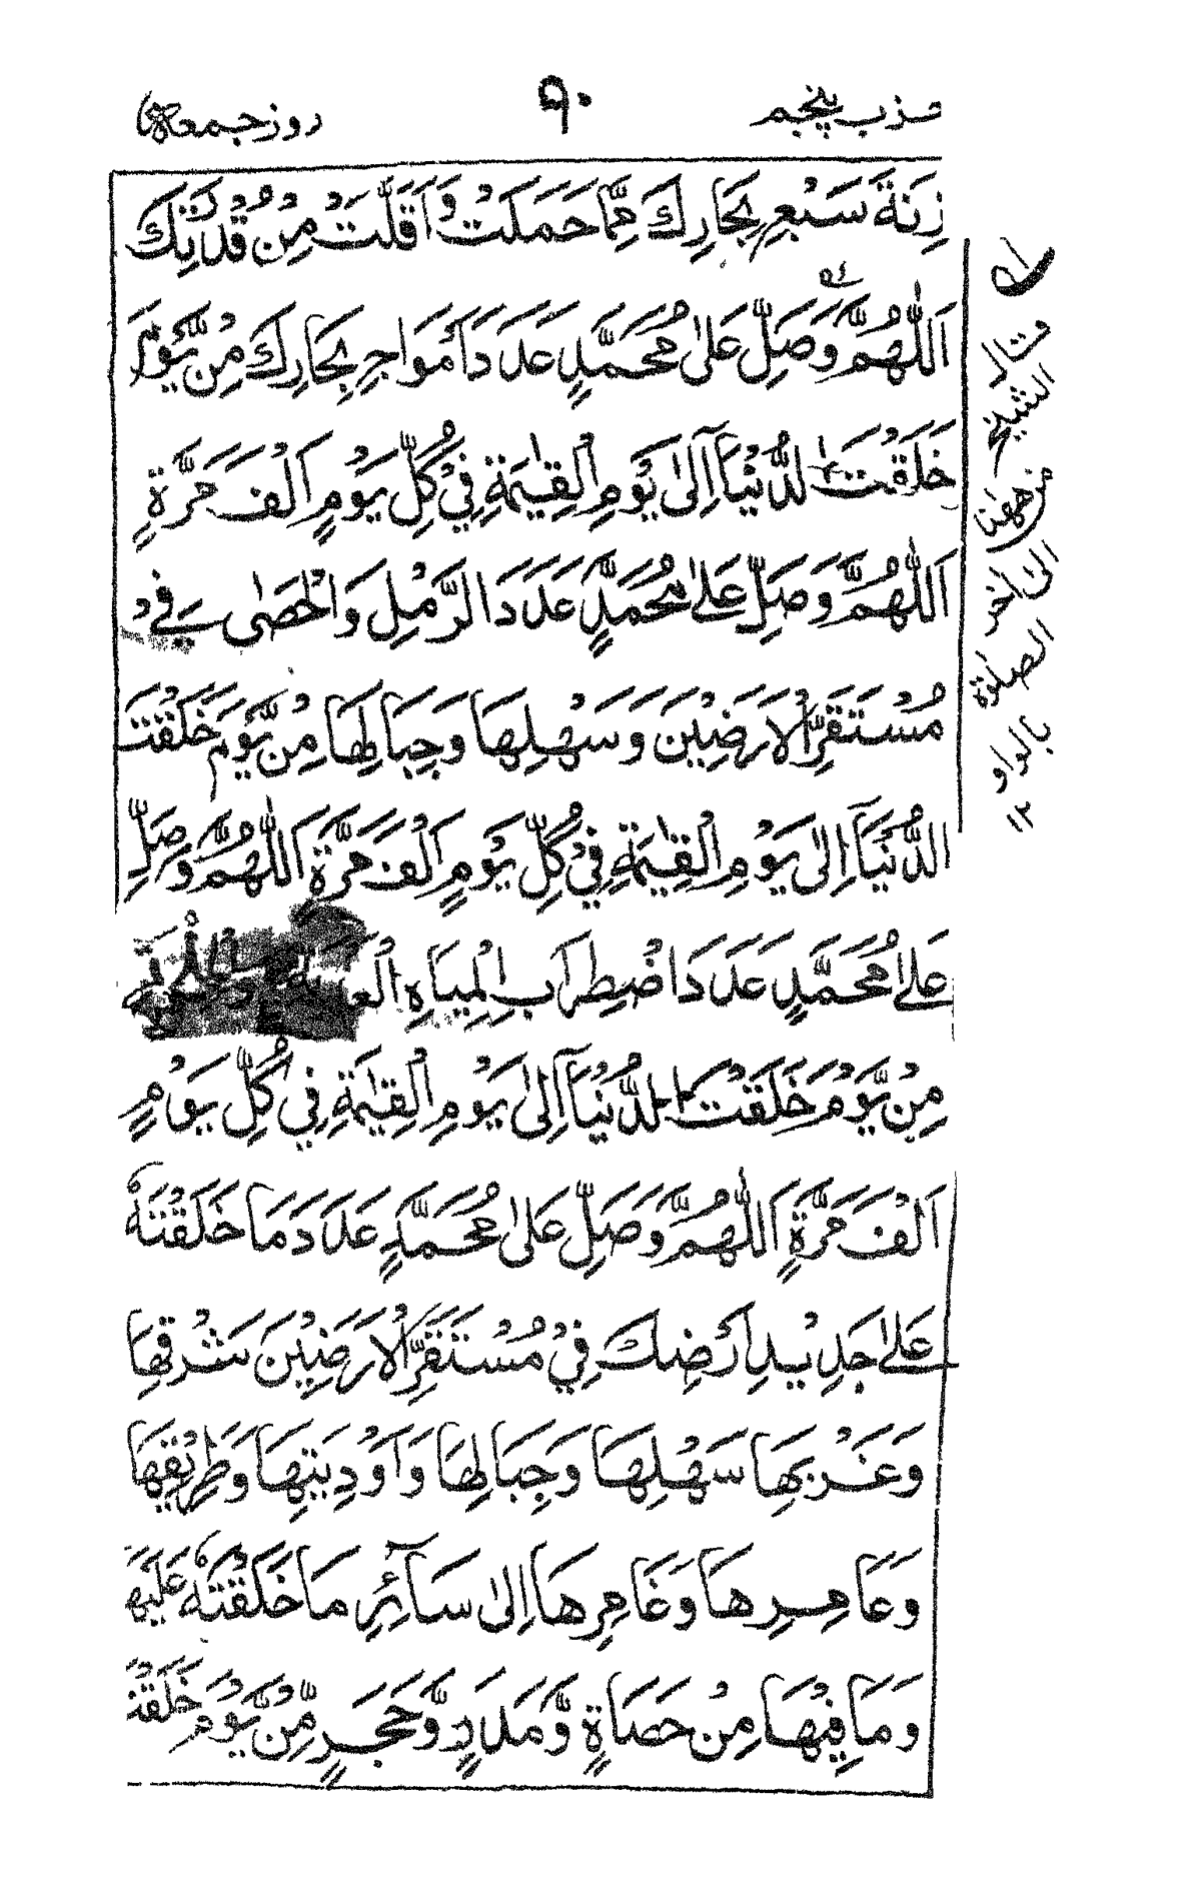 حزب پنجم ٩٠ روز جمعه
زِنَةَ سَبْعِ بِحَارِكَ مِمَّا حَمَلَتْ وَاَقَلَّتْ مِنْ قُدْرَتِكَ
اَللّٰهُمَّ وَصَلِّ عَلٰى مُحَمَّدٍ عَدَدَ اَمْوَاجِ بِحَارِكَ مِنْ يَّوْمَ
خَلَقْتَ الدُّنْيَآ اِلٰى يَوْمِ الْقِيٰمَةِ فِيْ كُلِّ يَوْمٍ اَلْفَ مَرَّةٍ
اَللّٰهُمَّ وَصَلِّ عَلٰى مُحَمَّدٍ عَدَدَ الرَّمْلِ وَالْحَصٰى فِيْ
مُسْتَقَرِّ الْاَرَضِيْنَ وَسَهْلِهَا وَجِبَالِهَا مِنْ يَّوْمَ خَلَقْتَ
الدُّنْيَآ اِلٰى يَوْمِ الْقِيٰمَةِ فِيْ كُلِّ يَوْمٍ اَلْفَ مَرَّةٍ اَللّٰهُمَّ وَصَلِّ
عَلٰى مُحَمَّدٍ عَدَدَ اضْطِرَابِ الْمِيَاهِ الْعَذْبَةِ وَالْمِلْحَةِ
مِنْ يَّوْمَ خَلَقْتَ الدُّنْيَآ اِلٰى يَوْمِ الْقِيٰمَةِ فِيْ كُلِّ يَوْمٍ
اَلْفَ مَرَّةٍ اَللّٰهُمَّ وَصَلِّ عَلٰى مُحَمَّدٍ عَدَدَ مَا خَلَقْتَهٗ
عَلٰى جَدِيْدِ اَرْضِكَ فِيْ مُسْتَقَرِّ الْاَرَضِيْنَ شَرْقِهَا
وَغَرْبِهَا سَهْلِهَا وَجِبَالِهَا وَاَوْدِيَتِهَا وَطَرِيْقِهَا
وَعَامِرِهَا وَغَامِرِهَا اِلٰى سَآئِرِ مَا خَلَقْتَهٗ عَلَيْهَا
وَمَا فِيْهَا مِنْ حَصَاةٍ وَّمَدَرٍ وَّحَجَرٍ مِّنْ يَّوْمَ خَلَقْتَ
قال
الشيخ
من ههنا
الى اخر
الصلوة
بالواو
١٢